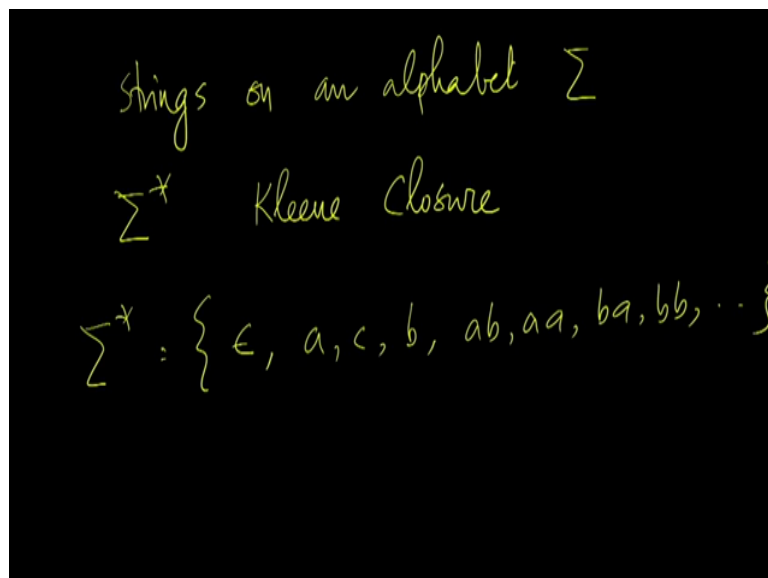 strings on an alphabet Σ
Σ* Kleene Closure
Σ* : { ϵ, a, c, b, ab, aa, ba, bb, ·· }